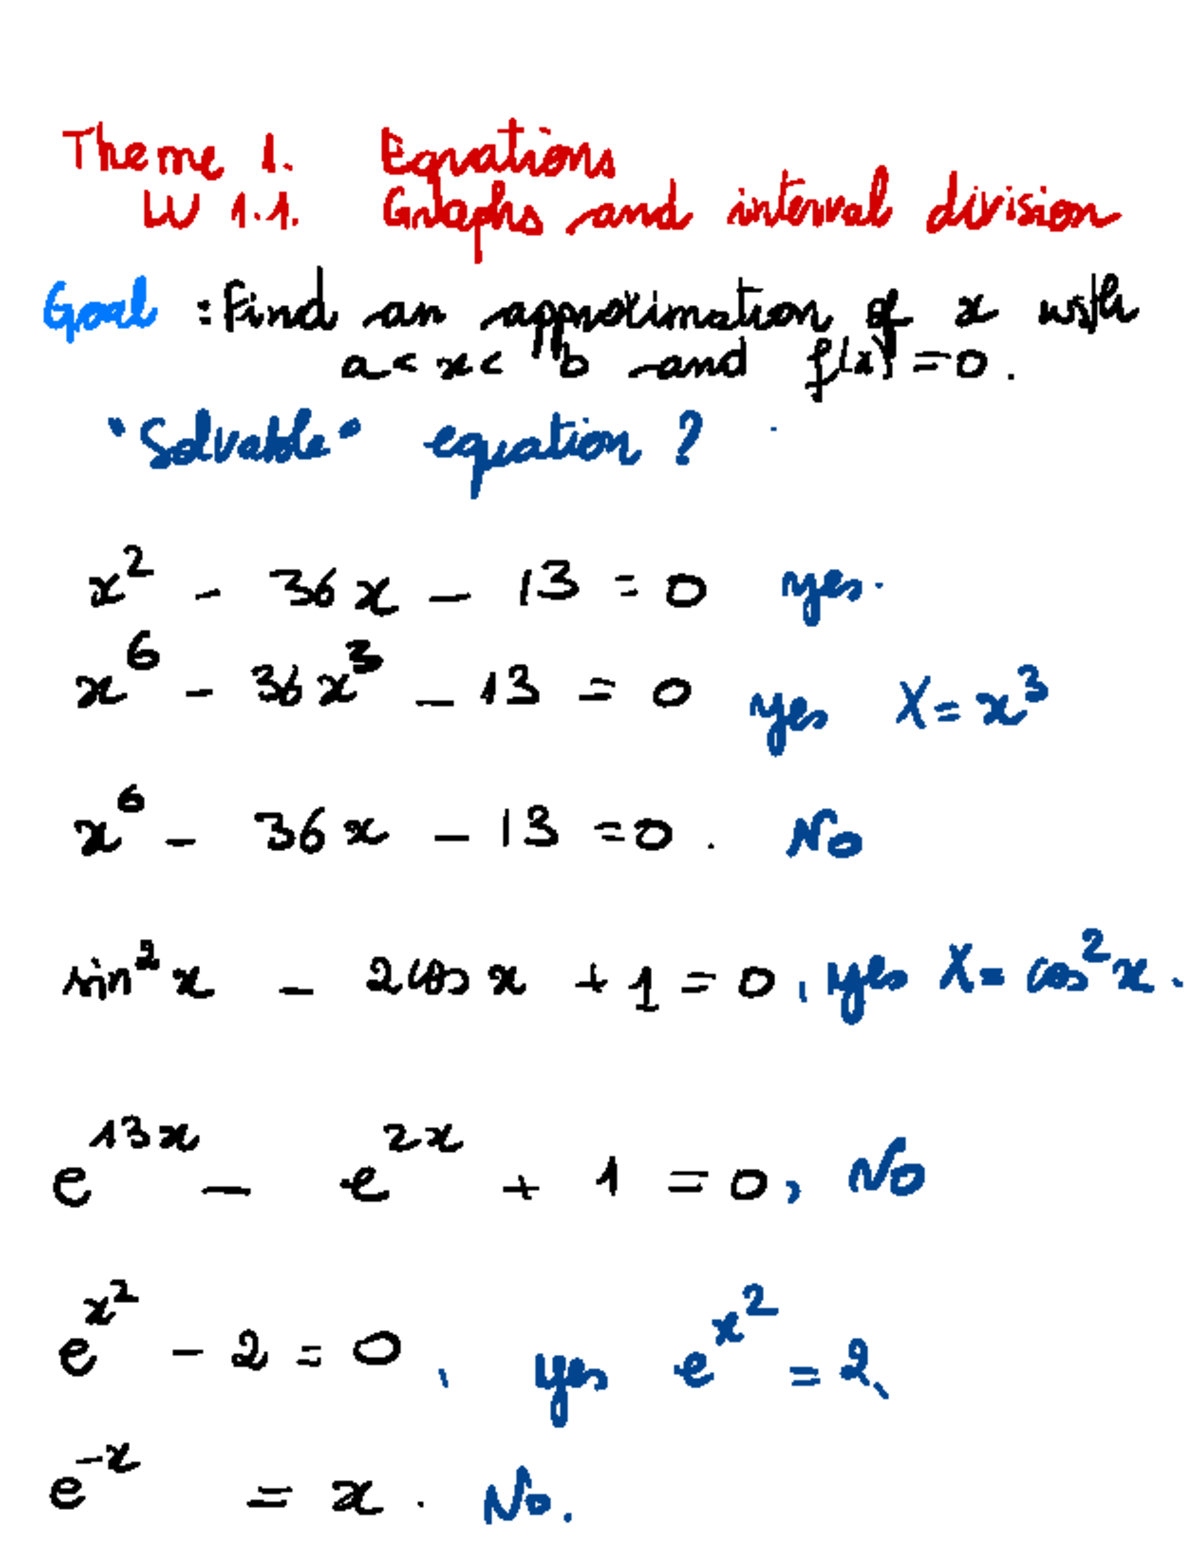 Theme 1. Equations
LU 1.1. Graphs and interval division
Goal : Find an approximation of x with
a < x < b and f(x) = 0.
"Solvable" equation ?
x² - 36x - 13 = 0 yes.
x⁶ - 36x³ - 13 = 0 yes X = x³
x⁶ - 36x - 13 = 0. No
sin²x - 2cos x + 1 = 0, yes X = cos²x.
e^{13x} - e^{2x} + 1 = 0, No
e^{x²} - 2 = 0, yes e^{x²} = 2,
e^{-x} = x. No.